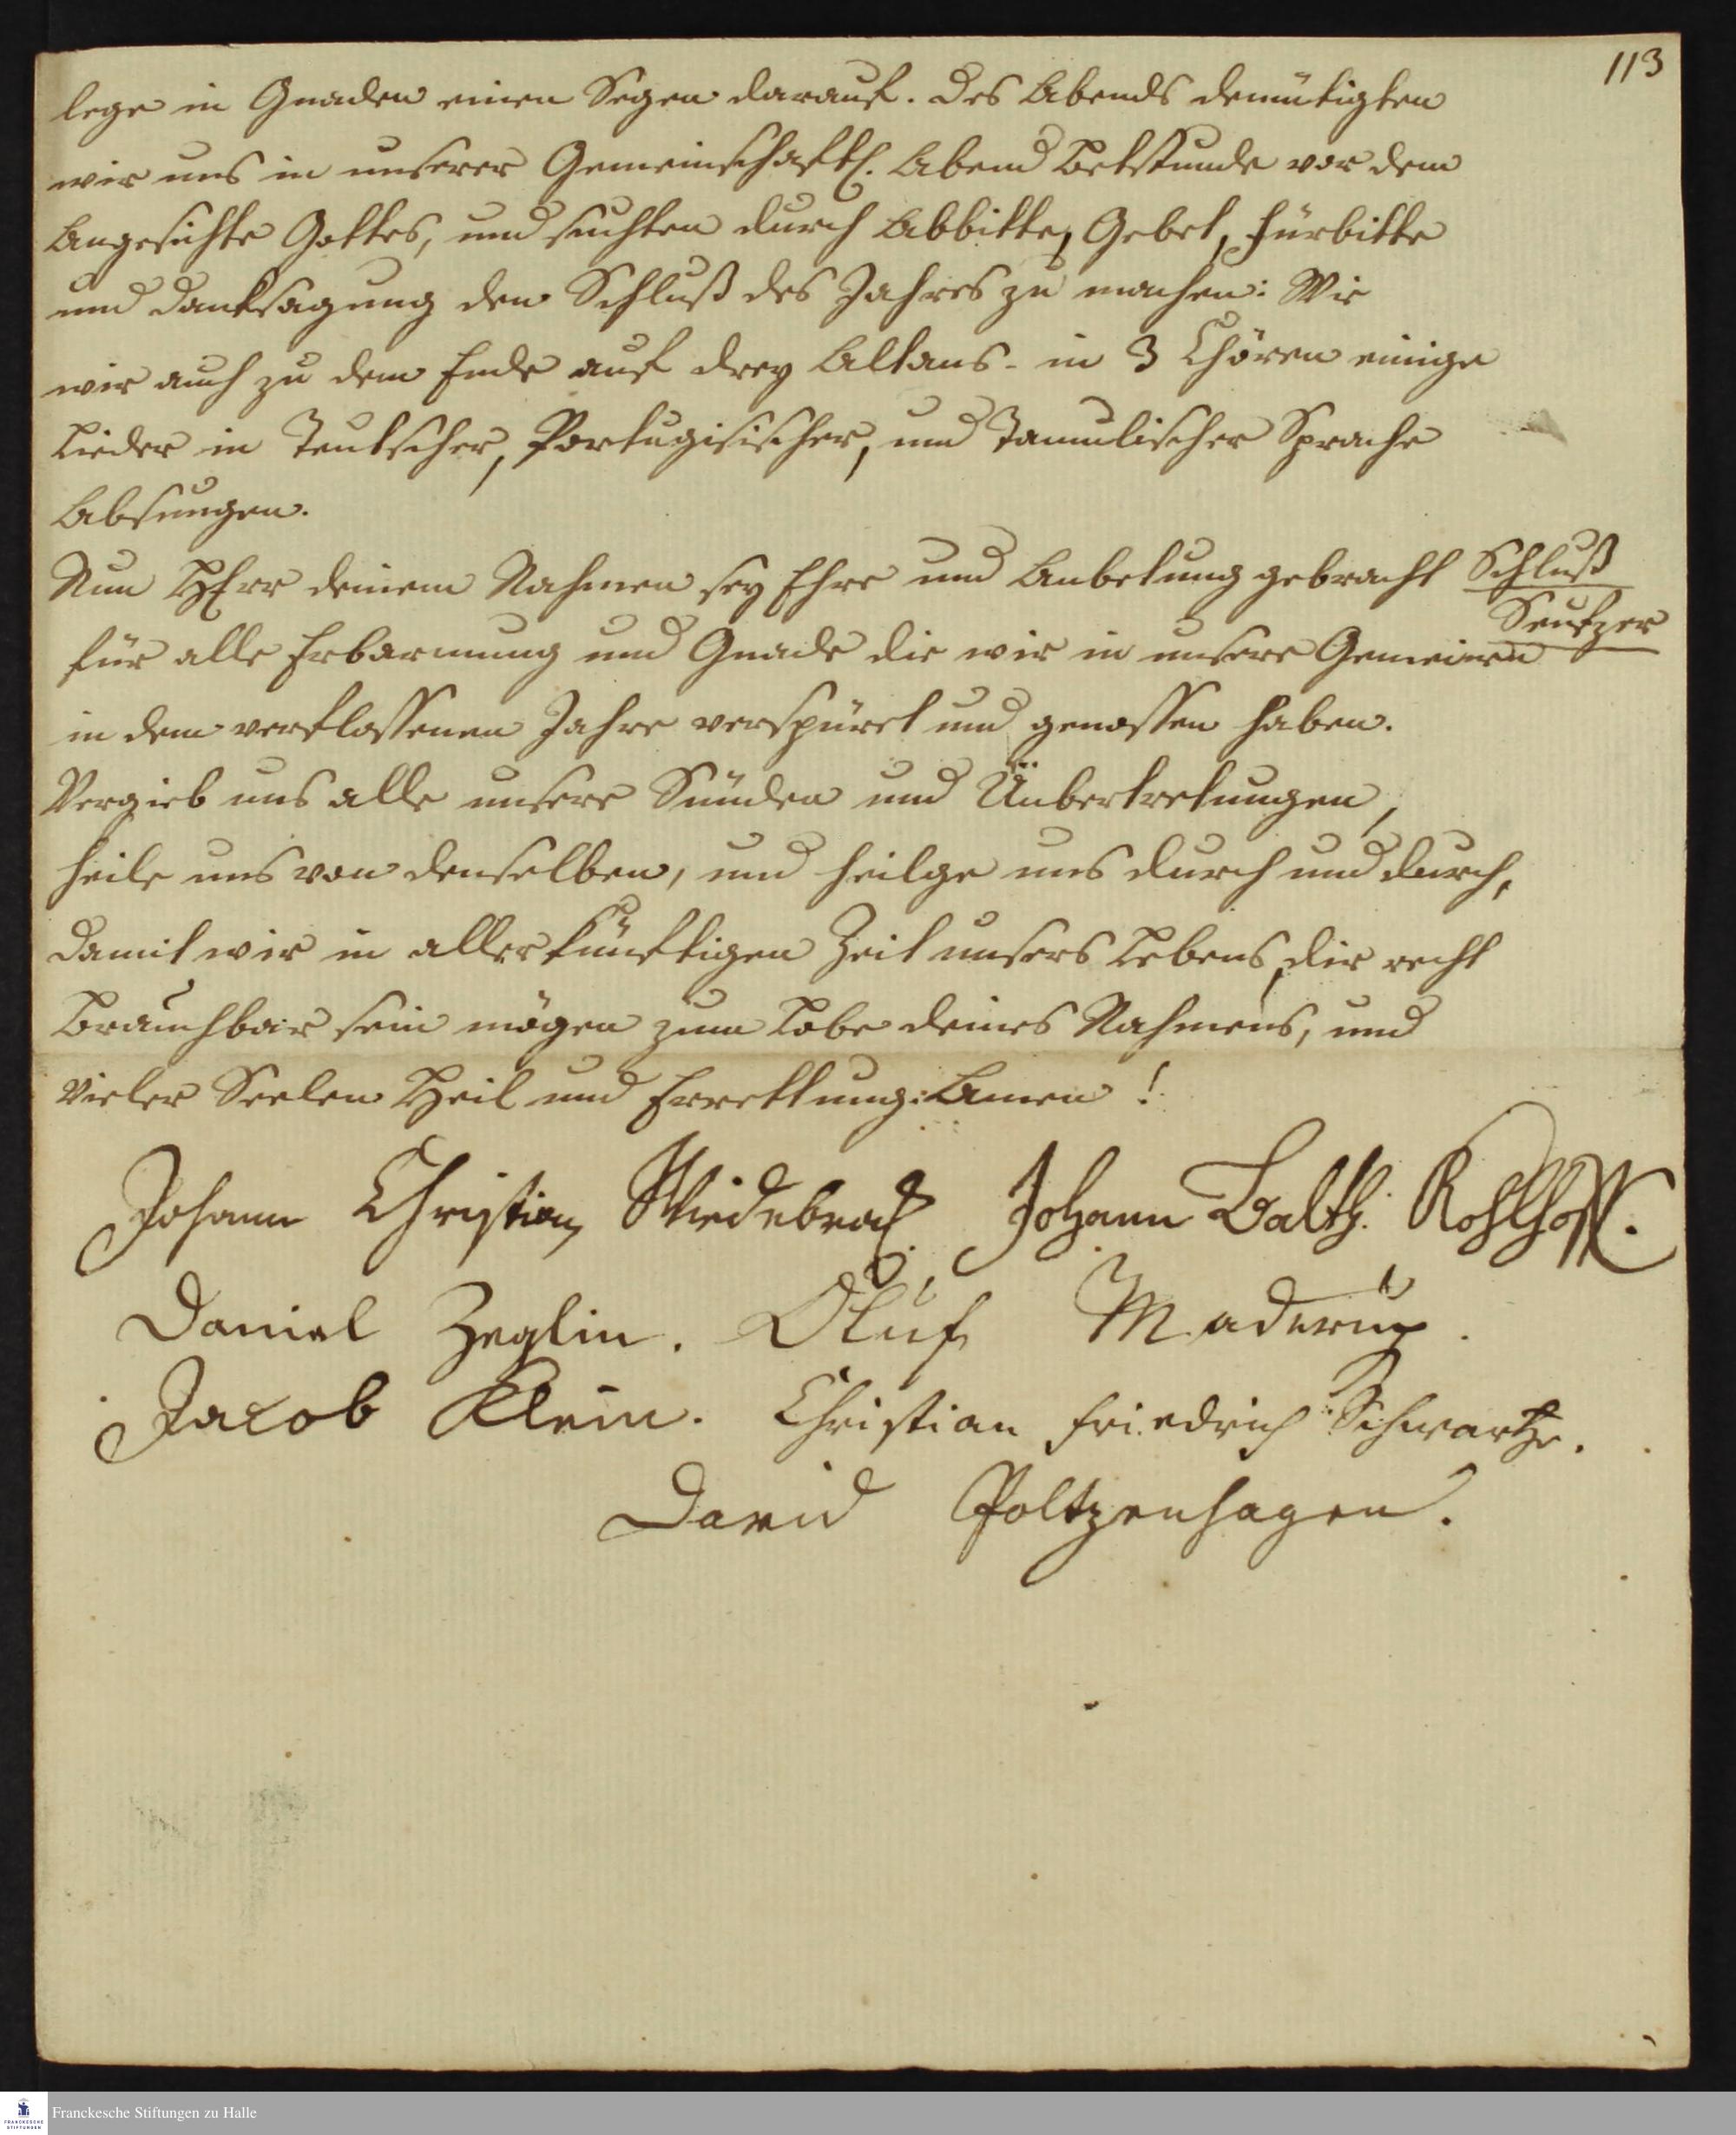 113
lege in Gnaden einen Segen darauf. Des Abends demütigten
wir uns in unserer Gemeinschaftl. Abend Betstunde vor dem
Angesichte Gottes, und suchten durch Abbitte, Gebet, Fürbitte
und Dancksagung den Schluß des Jahres zu machen: Wie
wir auch zu dem Ende auf drey Altans- in 3 Chören einige
Lieder in Teutscher, Portugisischer, und Tamulischer Sprache
Absungen.
Nun HErr deinem Nahmen sey Ehre und Anbetung gebracht
Schluß
Seufzer
für alle Erbarmung und Gnade die wir in unsere Gemeinen
in dem verflossenen Jahre verspüret und genossen haben.
Vergieb uns alle unsere Sünden und Übertretungen,
heile uns von denselben, und heilge uns durch und durch,
damit wir in aller künftigen Zeit unsers Lebens, dir recht
Brauchbar sein mögen zum Lobe deines Nahmens, und
vieler Seelen Heil und Errettung: Amen!
Johann Christian Wiedebrock. Johann Balth. Kohlhoff.
Daniel Zeglin. Oluf Maderup.
Jacob Klein. Christian Friedrich Schwartze.
David Poltzenhagen.
Franckesche Stiftungen zu Halle
FRANCKESCHE
STIFTUNGEN